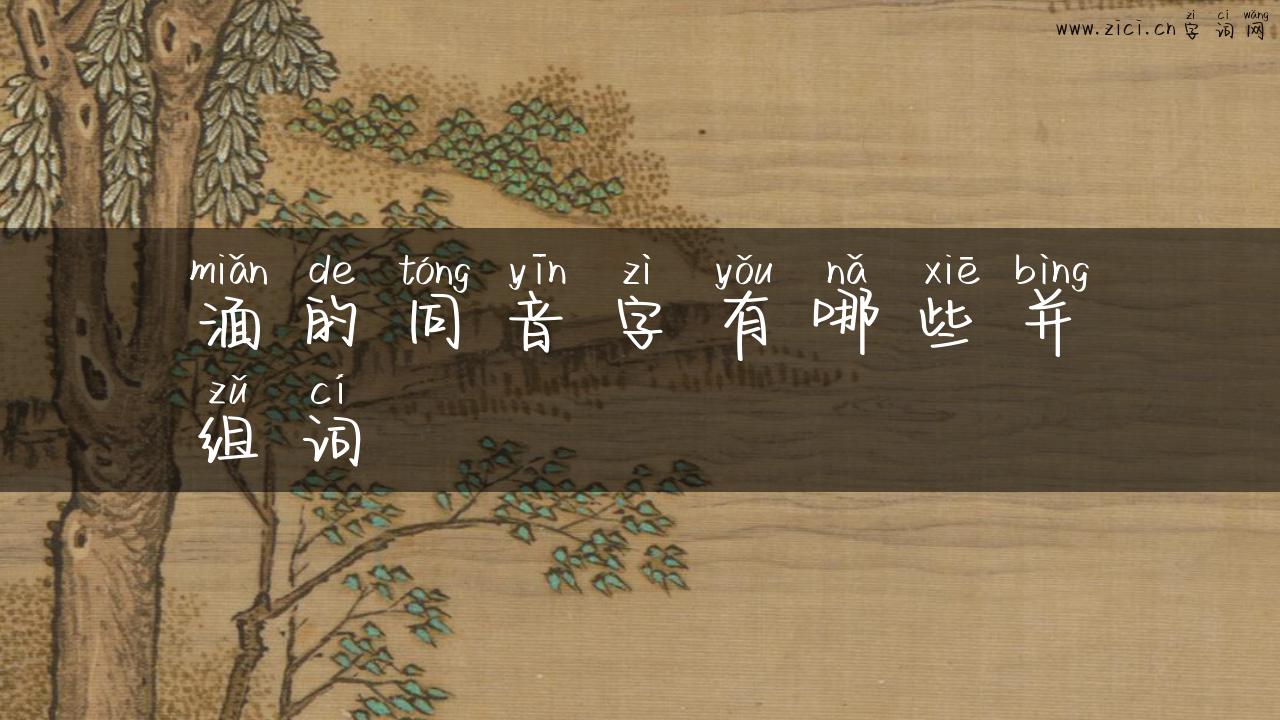 www.zici.cn 字词网
zì cí wǎng
miǎn de tóng yīn zì yǒu nǎ xiē bìng
湎的同音字有哪些并
zǔ cí
组词